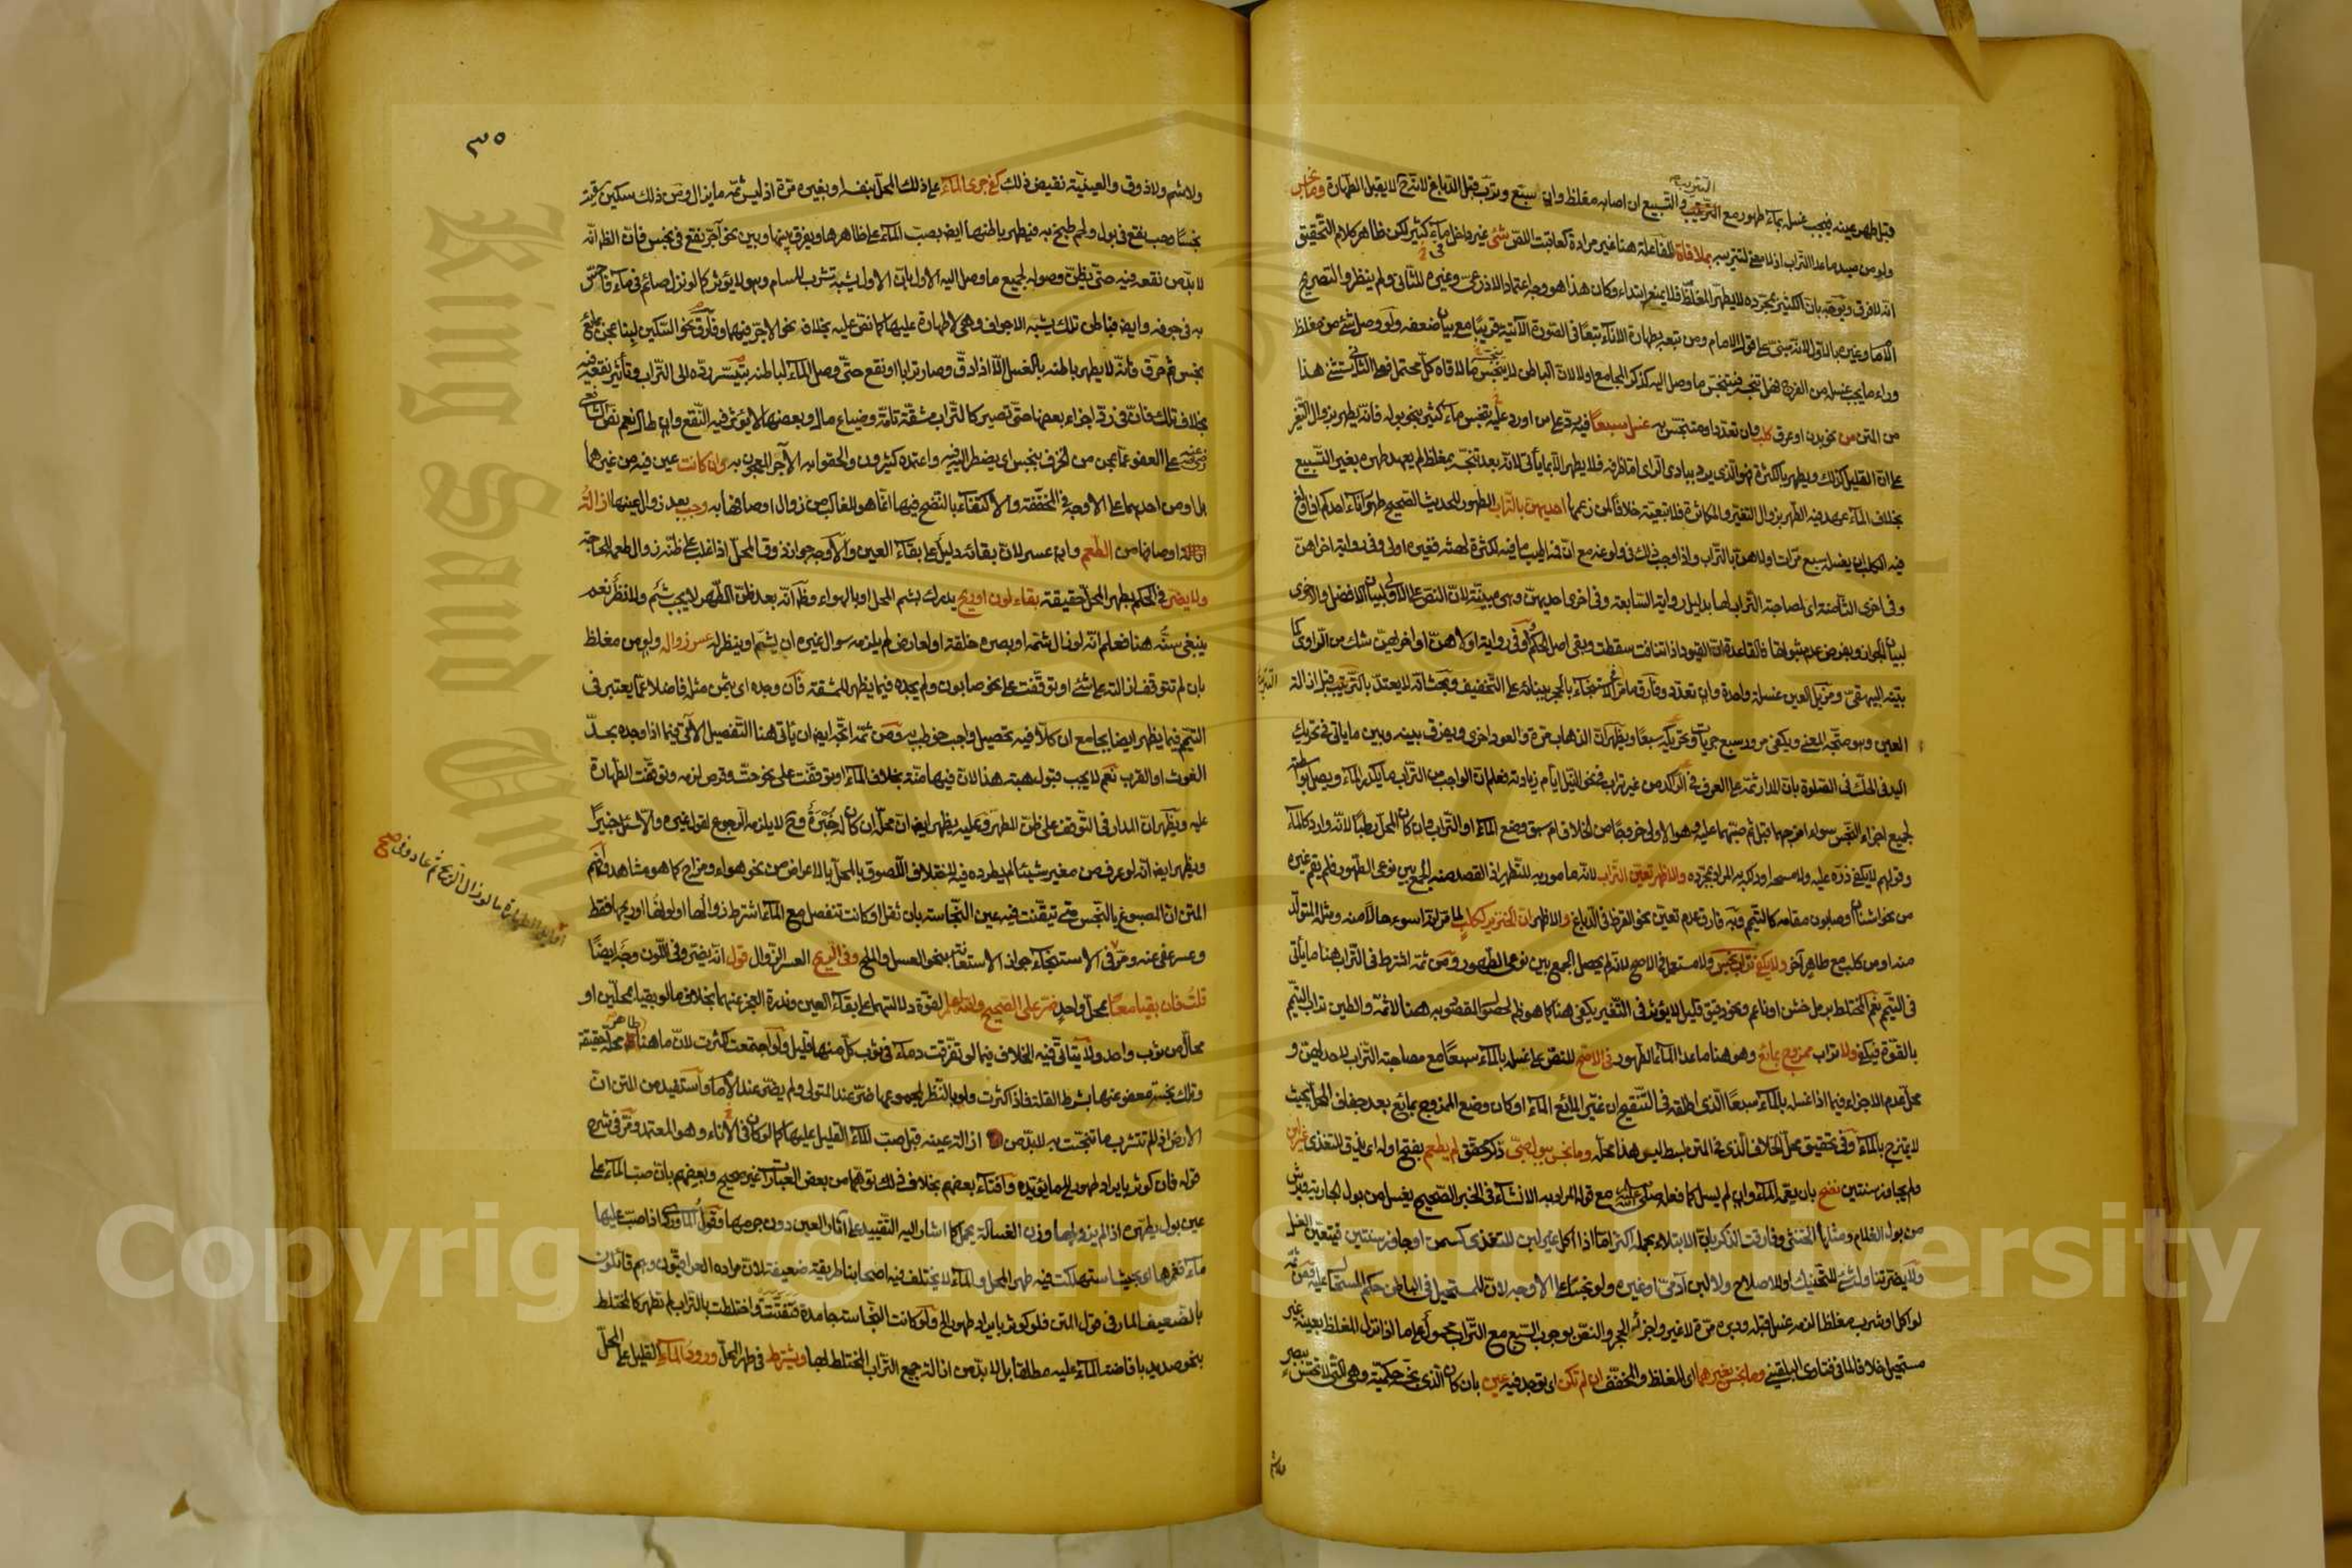 التتريب
قبل طهر عينه فيجب غسله بماء طهور مع التتريب والتسبيع ان اصابه مغلظ وان سبع وترب قبل الدباغ لانه ح لا يقبل الطهارة وما نجس
ولو من صيد ما عدا التراب اذ لا معنى لتتريبه بملاقاة المفاعلة هنا غير مرادة كعاقبت اللص شئ غير داخل ماء كثير لكن ظاهر كلام التحقيق
انه لا فرق ويوجه بان الكثير بمجرده لا يطهر المغلظ فلا يمنعه ابتداء وكان هذا هو وجه اعتماد الاذرعى وغيره للثانى ولم ينظروا لتصريح
الامام وغيره بالاول لانه مبنى على قول الامام ومن تبعه بطهارة الاناء تبعا فى الصورة الآتية قريبا مع بيان ضعفه ولو وصل شئ من مغلظ
وراء ما يجب غسله من الفرج فهل تنجسه فينجس ما وصل اليه كذكر المجامع اولا لان الباطن لا ينجسه ما لاقاه كل محتمل فعلى الثانى يستثنى هذا
من المتن من نحو بدن او عرق كلب وان تعدد او متنجس به غسل سبعا
على ان القليل كذلك ويطهر بالكثرة فهو الذى يرد ببادى الراى اما ظرفه فلا يطهر الا بما ياتى لانه بعد تنجسه بمغلظ لم يعهد طهره بغير التسبيع
بخلاف الماء عهد فيه الطهر بزوال التغير والمكاثرة فلا تبعية خلافا لمن زعمها احديهن بالتراب الطهور للحديث الصحيح طهور اناء احدكم اذا ولغ
فيه الكلب ان يغسله سبع مرات اولاهن بالتراب واذا وجب ذلك فى ولوغه مع ان فمه اطيب ما فيه لكثرة لهثه فغيره اولى وفى رواية اخراهن
وفى اخرى الثامنة اى لمصاحبة التراب لها بدليل رواية السابعة وفى اخرى احديهن وهى مبينة لان النص على الاولى لبيان الافضل والاخرى
لبيان الجواز وبفرض عدم ثبوتها فالقاعدة ان القيود اذا تنافت سقطت وبقى اصل الحكم وفى رواية اولاهن او اخراهن شك من الراوى كما
بينه البيهقى ومزيل العين غسلة واحدة وان تعدد وفارق ما مر فى الاستنجاء بالحجر ببنائه على التخفيف وبحث انه لا يعتد بالتتريب قبل ازالة
العين وهو متجه المعنى ويكفى مرور سبع جريات وتحريكه سبعا ويظهر ان الذهاب مرة والعود اخرى ويفرق بينه وبين ما ياتى فى تحريك
اليد فى الحك فى الصلوة بان المدار ثمة على العرف فى الراكد من غير تراب فى نحو النيل ايام زيادته فعلم ان الواجب من التراب ما يكدر الماء ويصل بواسطته
لجميع اجزاء النجس سواء امزجهما قبل ثم صبهما عليه وهو الاولى خروجا من الخلاف ام سبق وضع الماء او التراب وان كان المحل رطبا لانه وارد كالماء
وقولهم لا يكفى ذره عليه ولا مسحه او دلكه به المراد بمجرده والاظهر تعين التراب لانه مأمور به للتطهير اذ القصد منه الجمع بين نوعى الطهور فلم يقم غيره
من نحو اشنان وصابون مقامه كالتيمم وبه فارق عدم تعين نحو القرظ فى الدباغ والاظهر ان الخنزير ككلب لما مر انه اسوء حالا منه ومثله المتولد
منه او من كلب مع طاهر آخر ولا يكفى تراب نجس ولا مستعمل فى الاصح لانه لم يحصل الجمع بين نوعى الطهور ومن ثمة اشترط فى التراب هنا ما يأتى
فى التيمم نعم المختلط برمل خشن او ناعم ونحو دقيق قليل لا يؤثر فى التغير يكفى هنا كما هو ظاهر لحصول المقصود به هنا لا ثمة والطين تراب التيمم
بالقوة فيكفى ولا تراب ممزوج بمائع وهو هنا ما عدا الماء الطهور فى الاصح للنص على غسله بالماء سبعا مع مصاحبة التراب لاحداهن و
محل عدم الاجزاء فيما اذا غسله بالماء سبعا الذى اطلقه فى التنقيح ان غير المائع الماء او كان وضع الممزوج بمائع بعد جفاف المحل بحيث
لا يمتزج بالماء وفى تحقيق محل الخلاف الذى فى المتن بسط ليس هذا محله وما نجس ببول صبى ذكر محقق لم يطعم بفتح اوله اى يذق للتغذى غير لبن
ولم يجاوز سنتين نضح بان يعمه الماء وان لم يسل كما فعله صلى الله عليه وسلم مع قوله المراد به الانشاء فى الخبر الصحيح يغسل من بول الجارية ويرش
من بول الغلام ومثلها الخنثى وفارقت الذكر بان الابتلاء بحمله اكثر اما اذا اكل غير لبن للتغذى كسمن او جاوز سنتين فيتعين الغسل
ولا يضر تناول شئ للتحنيك او للاصلاح ولا لبن آدمى او غيره ولو نجسا على الاوجه لان للمستحيل فى الباطن حكم المستحال عليه ومن ثمة
لو اكل او شرب مغلظا لزمه غسل قبله ودبره مرة لا غير واجزاه الحجر والنص بوجوب السبع مع التراب محمول على ما اذا نزل المغلظ بعينه غير
مستحيل خلافا لما فى فتاوى البلقينى وما نجس بغيرهما اى المغلظ والمخفف ان لم تكن اى توجد فيه عين بان كان الذى نجسه حكمية وهى التى لا تحس ببصر
ولا شم
٣٥
ولا شم ولا ذوق والعينية نقيض ذلك كفى جرى الماء على ذلك المحل بنفسه او بغيره مرة اذ ليس ثمة ما يزال ومن ذلك سكين سقيت
نجسا وحب نقع فى بول ولحم طبخ به فيطهر باطنها ايضا بصب الماء على ظاهرها ويفرق بينها وبين نحو آجر نقع فى نجس فان الظ انه
لا بد من نقعه فيه حتى يظن وصوله لجميع ما وصل اليه الاول بان الاول يشبه تشرب المسام وهو لا يؤثر كما لو نزل صائم فى ماء فاحس
به فى جوفه وايضا فباطن تلك يشبه الاجواف وهى لا طهارة عليها كما نص عليه بخلاف نحو الآجر فيهما وفارق نحو السكين لبنا عجن بمائع
نجس ثم حرق فانه لا يطهر باطنه بالغسل الا اذا دق وصار ترابا او نقع حتى وصل الماء لباطنه بتيسر رده الى التراب وتأثير نقعه فيه
بخلاف تلك فان فى دق اجزاء بعضها حتى تصير كالتراب مشقة تامة وضياع مال وبعضها لا يؤثر فيه النقع وان طال نعم نص الشافعى
رضى الله عنه على العفو عما عجن من الخزف بنجس اى يضطر اليه فيه واعتمده كثيرون والحقوا به الآجر المعجون به وان كانت عين فيه من غيرهما
بل او من احدهما على الاوجه فى المخففة والاكتفاء بالنضح فيهما انما هو للغالب من زوال اوصافها به وجب بعد زوال عينها ازالة
اوصافها من الطعم وان عسر لان بقائه دليل على بقاء العين والاوجه جواز ذوق المحل اذا غلب على ظنه زوال الطعم للحاجة
ولا يضر فى الحكم بطهر المحل حقيقة بقاء لون او ريح يدرك بشم المحل او بالهواء وظ انه بعد ظن الطهر لا يجب شم ولا نظر نعم
ينبغى سنه هنا فعلم انه لو زال شمه او بصره خلقة او لعارض لم يلزمه سوال غيره ان يشم او ينظر له عسر زواله ولو من مغلظ
بان لم تتوقف ازالته على شئ او توقفت على نحو صابون ولم يجده فيما يظهر للمشقة فان وجده اى بثمن مثله فاضلا عما يعتبر فى
التيمم فيما يظهر ايضا بجامع ان كلا فيه تحصيل واجب خوطب به ومن ثمة اتجه ايضا ان يأتى هنا التفصيل الآتى فيما اذا وجده بحد
الغوث او القرب نعم لا يجب قبول هبته هذا لان فيها منة بخلاف الماء او توقفت على نحو حت وقرص لزمه وتوقفت الطهارة
عليه ويظهر ان المدار فى التوقف على ظن المطهر وعليه يظهر ايضا ان محله ان كان له خبرة وح لا يلزمه الرجوع لقول غيره والا سئل خبيرا
ويظهر ايضا انه لو عرف من مغير شيئا لم يطرده فيه لاختلاف اللصوق بالمحل بالاعراض من نحو هواء ومزاج كما هو مشاهد
المتن ان المصبوغ بالنجس متى تيقنت فيه عين النجاسة بان ثقل او كانت تنفصل مع الماء اشترط زوالها او لونها او ريحها فقط
وعسر عفى عنه ومر فى الاستنجاء جواز الاستعانة بنحو العسل والملح وفى الريح العسر الزوال قول انه يضر وفى اللون وجه ايضا
قلت فان بقيا معا بمحل واحد ضر على الصحيح والله اعلم لقوة دلالتهما على بقاء العين وندرة العجز عنهما بخلاف ما لو بقيا بمحلين او
محال من ثوب واحد ولا يتاتى فيه الخلاف فيما لو تفرقت دماء فى ثوب كل منها قليل ولو اجتمعت كثرت لان ما هنا محله طاهر حقيقة
وتلك نجسة معفو عنها بشرط القلة فاذا كثرت ولو بالنظر لمجموعها ضر عند المتولى ولم يضر عند الامام واستفيد من المتن ان
الارض اذا لم تتشرب ما تنجست به لا بد من ازالة عينه قبل صب الماء القليل عليها كما لو كان فى الاناء وهو المعتمد ومر فى شرح
قوله فان كوثر بايراد طهور الخ ما يؤيده وافتاء بعضهم بخلاف ذلك توهما من بعض العبارات غير صحيح وبعضهم بان صب الماء على
عين بول يطهره اذا لم يزد بها وزن الغسالة يحمل كما اشار اليه التقييد على آثار العين دون جرمها وقول الماوردى اذا صب عليها
ماء فغمرها اى بحيث استهلكت فيه طهر المحل والماء لا يختلف فيه اصحابنا طريقة ضعيفة لان مراده العراقيون وهم قائلون
بالضعيف المار فى قول المتن فلو كوثر بايراد طهور الخ ولو كانت النجاسة جامدة فتفتتت واختلطت بالتراب لم تطهر كالمختلط
بنحو صديد بافاضة الماء عليه مطلقا بل لا بد من ازالة جميع التراب المختلط بها ويشترط فى طهر المحل ورود الماء القليل على المحل